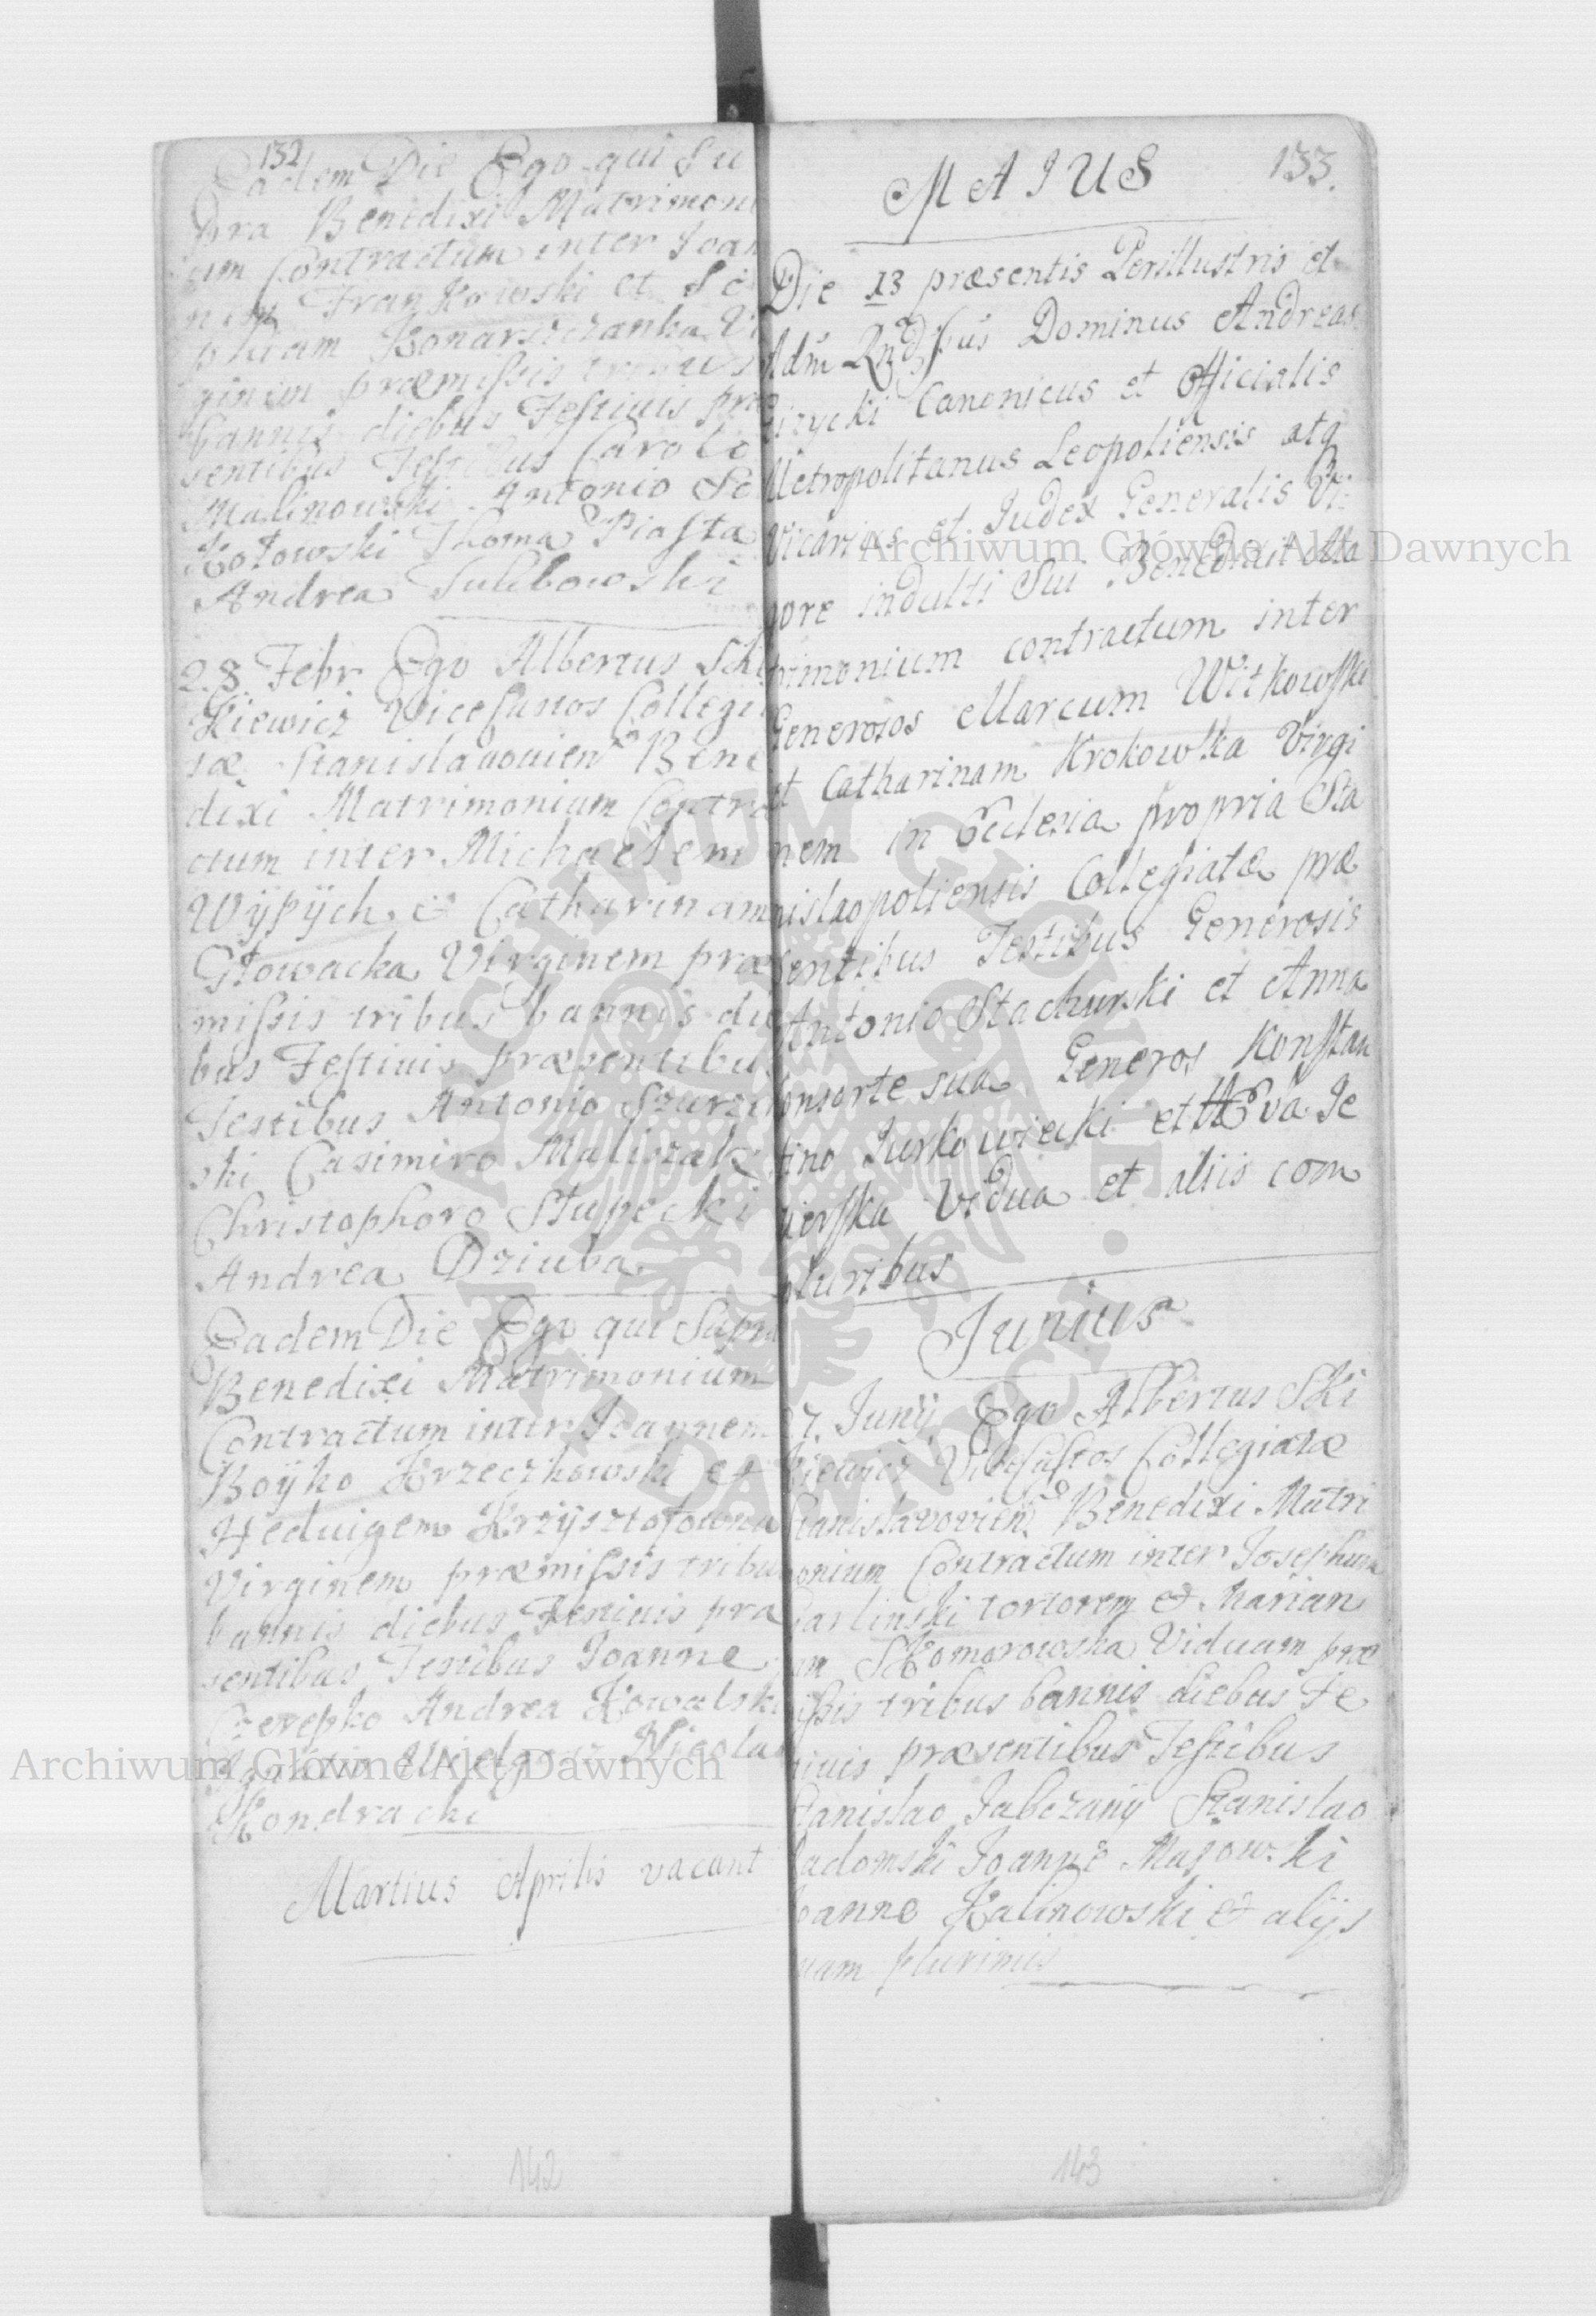 132
Eadem Die Ego qui Su
pra Benedixi Matrimoni
um Contractum inter Joan
nem Frankowski et So
phiam Konarsczanka Vi
ginem præmissis tribus
bannis diebus Festivis præ
sentibus Testibus Carolo
Malinowski Antonio So
kołowski Thoma Piasta
Andrea Sulibowski
28 Febr Ego Albertus Ski
kiewicz ViceCustos Collegi
tæ Stanislavovien Bene
dixi Matrimonium Contra
ctum inter Michaelem
Wÿpÿch & Catharinam
Głowacka Virginem præ
missis tribus bannis die
bus Festivis præsentibus
Testibus Antonio
ski Casimiro Maliszak
Christophoro Słupecki
Andrea Dziuba
Eadem Die Ego qui Supra
Benedixi Matrimonium
Contractum inter Joannem
Boÿko Krzeczkowski et
Heduigem Krzÿsztofowna
Virginem præmissis tribu
bannis diebus Festivis præ
sentibus Testibus Joanne
Czerepko Andrea Kowalski
Nicola
Kondracki
Martius Aprilis vacant
142
133.
MAIUS
Die 13 præsentis Perillustris et
Adm Rndssus Dominus Andreas
izycki Canonicus et Officialis
Metropolitanus Leopoliensis atq
Vicarius et Judex Generalis Vi
gore indulti Sui Benedixit Ma
trimonium contractum inter
Generosos Marcum Witkowski
et Catharinam Krokowska Virgi
nem in Ecclesia propria Sta
nislaopoliensis Collegiatæ præ
sentibus Testibus Generosis
Antonio Stachurski et Anna
Consorte sua Generos Konstan
tino Jurkowiecki et Eva Je
zierska Vidua et aliis com
pluribus
Junius
27. Junÿ Ego Albertus Ski
kiewicz ViceCustos Collegiatæ
Stanislavovien Benedixi Matri
monium Contractum inter Josephum
Karlinski tortorem & Marian
am Skomorowska Viduam præ
missis tribus bannis diebus Fe
stivis præsentibus Testibus
Stanislao Jabczanÿ Stanislao
Radomski Joanne Majowski
Joanne Kalinowski & alÿs
quam plurimis
143
Archiwum Główne Akt Dawnych
Archiwum Główne Akt Dawnych
ARCHIWUM GŁÓWNE AKT DAWNYCH